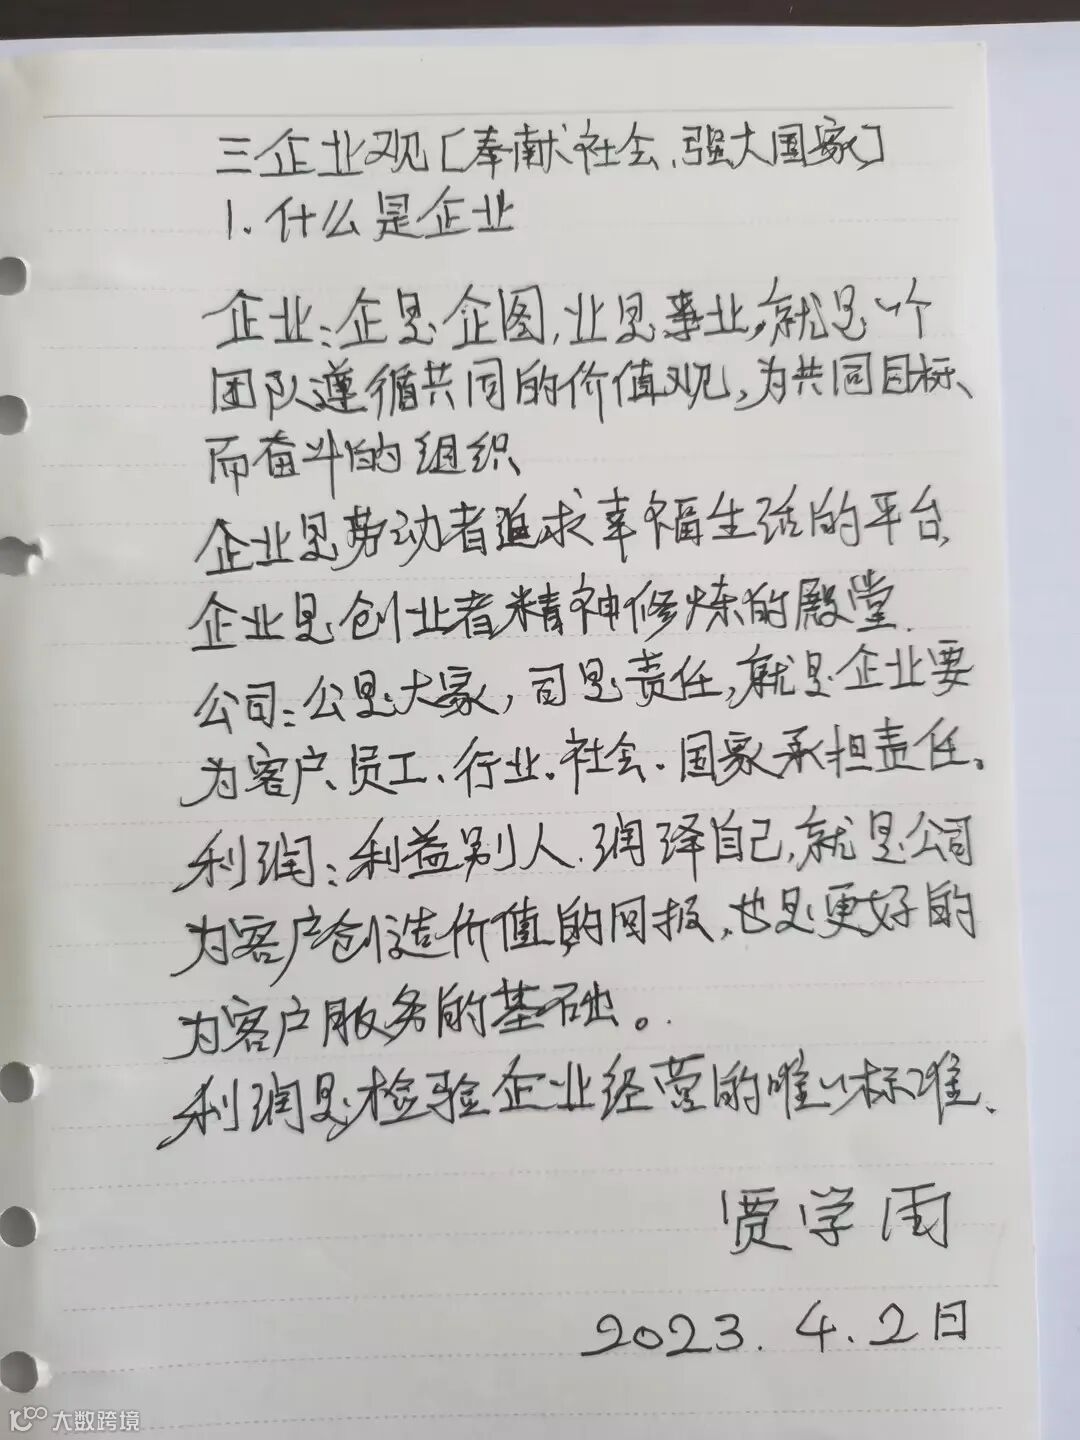 三企业观[奉献社会、强大国家]
1.什么是企业
企业:企是企图,业是事业,就是一个
团队遵循共同的价值观,为共同目标、
而奋斗的组织、
企业是劳动者追求幸福生活的平台、
企业是创业者精神修炼的殿堂.
公司:公是大家,司是责任,就是企业要
为客户、员工、行业、社会、国家承担责任。
利润:利益别人、润泽自己,就是公司
为客户创造价值的回报,也是更好的
为客户服务的基础。
利润是检验企业经营的唯一标准、
贾学雨
2023.4.2日
大数跨境